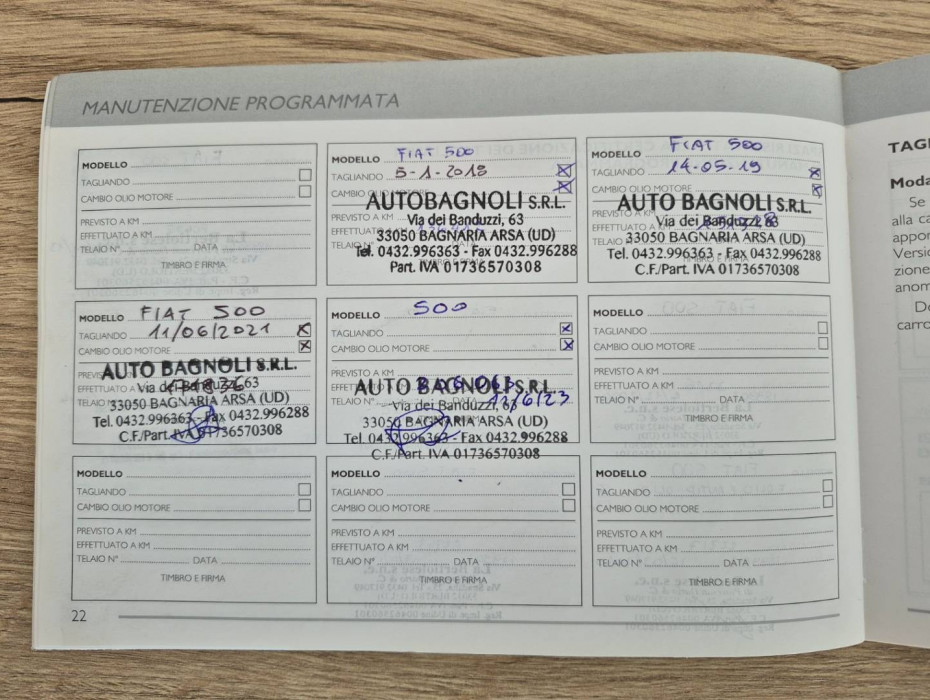 MANUTENZIONE PROGRAMMATA
MODELLO
TAGLIANDO
CAMBIO OLIO MOTORE
PREVISTO A KM
EFFETTUATO A KM
TELAIO N° DATA
TIMBRO E FIRMA
MODELLO FIAT 500
TAGLIANDO 5-1-2018
CAMBIO OLIO MOTORE
AUTOBAGNOLI S.R.L.
PREVISTO A KM
Via dei Banduzzi, 63
EFFETTUATO A KM
33050 BAGNARIA ARSA (UD)
TELAIO N°
Tel. 0432.996363 - Fax 0432.996288
Part. IVA 01736570308
MODELLO FIAT 500
TAGLIANDO 14-05-19
CAMBIO OLIO MOTORE
AUTO BAGNOLI S.R.L.
PREVISTO A KM
Via dei Banduzzi, 63
EFFETTUATO A
33050 BAGNARIA ARSA (UD)
TELAIO N°
Tel. 0432.996363 - Fax 0432.996288
C.F./Part. IVA 01736570308
MODELLO FIAT 500
TAGLIANDO 11/06/2021
CAMBIO OLIO MOTORE
AUTO BAGNOLI S.R.L.
EFFETTUATO A
Via dei Banduzzi, 63
33050 BAGNARIA ARSA (UD)
Tel. 0432.996363 - Fax 0432.996288
C.F./Part. IVA 01736570308
MODELLO 500
TAGLIANDO
CAMBIO OLIO MOTORE
AUTO BAGNOLI S.R.L.
TELAIO N° 12/6/23
Via dei Banduzzi, 63
33050 BAGNARIA ARSA (UD)
Tel. 0432.996363 - Fax 0432.996288
C.F./Part. IVA 01736570308
MODELLO
TAGLIANDO
CAMBIO OLIO MOTORE
PREVISTO A KM
EFFETTUATO A KM
TELAIO N° DATA
TIMBRO E FIRMA
MODELLO
TAGLIANDO
CAMBIO OLIO MOTORE
PREVISTO A KM
EFFETTUATO A KM
TELAIO N° DATA
TIMBRO E FIRMA
MODELLO
TAGLIANDO
CAMBIO OLIO MOTORE
PREVISTO A KM
EFFETTUATO A KM
TELAIO N° DATA
TIMBRO E FIRMA
MODELLO
TAGLIANDO
CAMBIO OLIO MOTORE
PREVISTO A KM
EFFETTUATO A KM
TELAIO N° DATA
TIMBRO E FIRMA
22
Se
alla ca
appor
Versi
zione
anom
carro